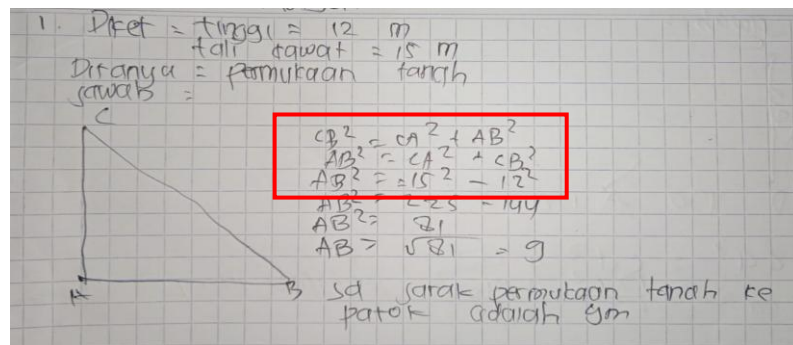 1. Diket = tinggi = 12 m
tali kawat = 15 m
Ditanya = permukaan tanah
Jawab =
C
CB² = CA² + AB²
AB² = CA² + CB²
AB² = =15² - 12²
AB² = 225 - 144
AB² = 81
AB = √81 = 9
A B
Jd jarak permukaan tanah ke
patok adalah 9m